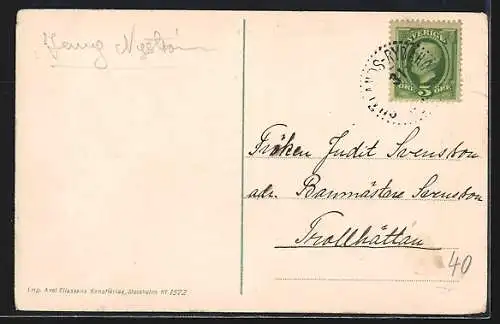 Jenny Nyström
SVERIGE
ÖRE 5 ÖRE
Fröken Judit Svensson
adr. Baumästare Svensson
Trollhättan
40
Imp. Axel Eliassons Konstförlag, Stockholm Nr. 1572